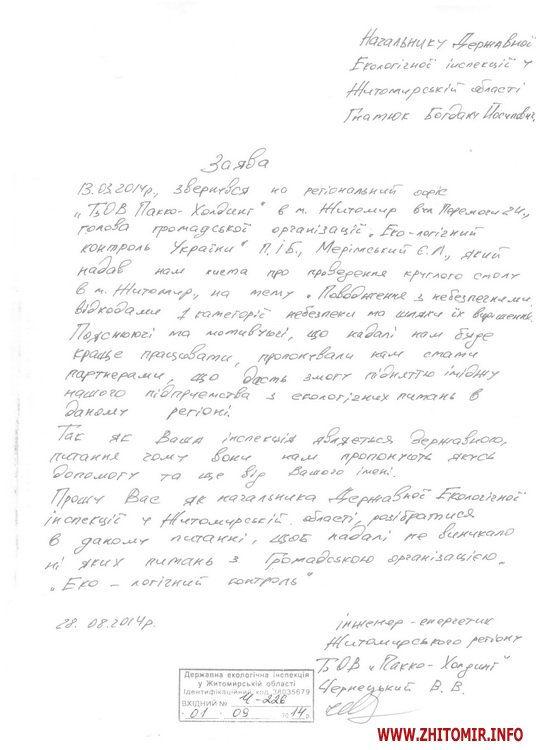 Начальнику Державної
Екологічної інспекції у
Житомирській області
Гнатюк Богдану Йосиповичу
Заява
13.03.2014р., звернувся на регіональний офіс
"ТзОВ Пакко-Холдинг" в м. Житомир вул Перемоги 24.,
голова громадської організації "Еко-логічний
контроль України" П.І.Б., Мерімський Є.Л., який
надав нам листа про проведення круглого столу
в м. Житомир, на тему "Поводження з небезпечними
відходами 1 категорії небезпеки та шляхи їх вирішення.
Пояснюючі та мотивуючі, що надалі нам буде
краще працювати, пропонували нам стати
партнерами, що дасть змогу підняттю іміджу
нашого підприємства з екологічних питань в
даному регіоні.
Так як Ваша інспекція являється державною,
питання чому вони нам пропонують якусь
допомогу та ще від Вашого імені.
Прошу Вас як начальника Державної Екологічної
інспекції у Житомирській області, розібратися
в даному питанні, щоб надалі не виникало
ні яких питань з Громадською організацією
"Еко-логічний контроль"
28.08.2014р.
інженер-енергетик
Житомирського регіону
ТзОВ "Пакко-Холдинг"
Чернецький В. В.
Державна екологічна інспекція
у Житомирській області
Ідентифікаційний код 38035679
ВХІДНИЙ № Ч-226
01 09 2014 р.
www.zhitomir.info